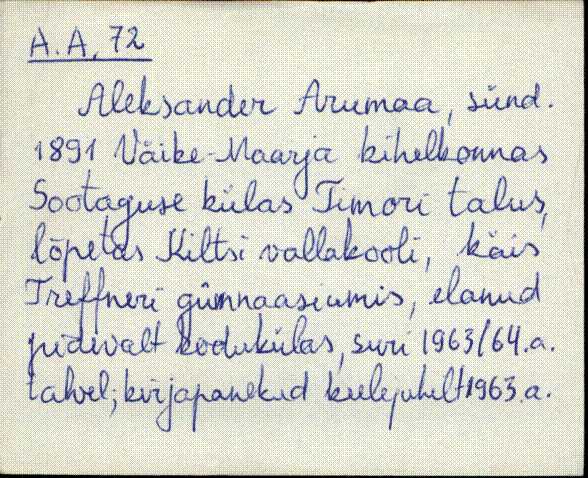 A.A, 72
Aleksander Arumaa, sünd.
1891 Väike-Maarja kihelkonnas
Sootaguse külas Timori talus,
lõpetas Kiltsi vallakooli, käis
Treffneri gümnaasiumis, elanud
pidevalt kodukülas, suri 1963/64.a.
talvel; kirjapanekud keelejuhilt 1963.a.